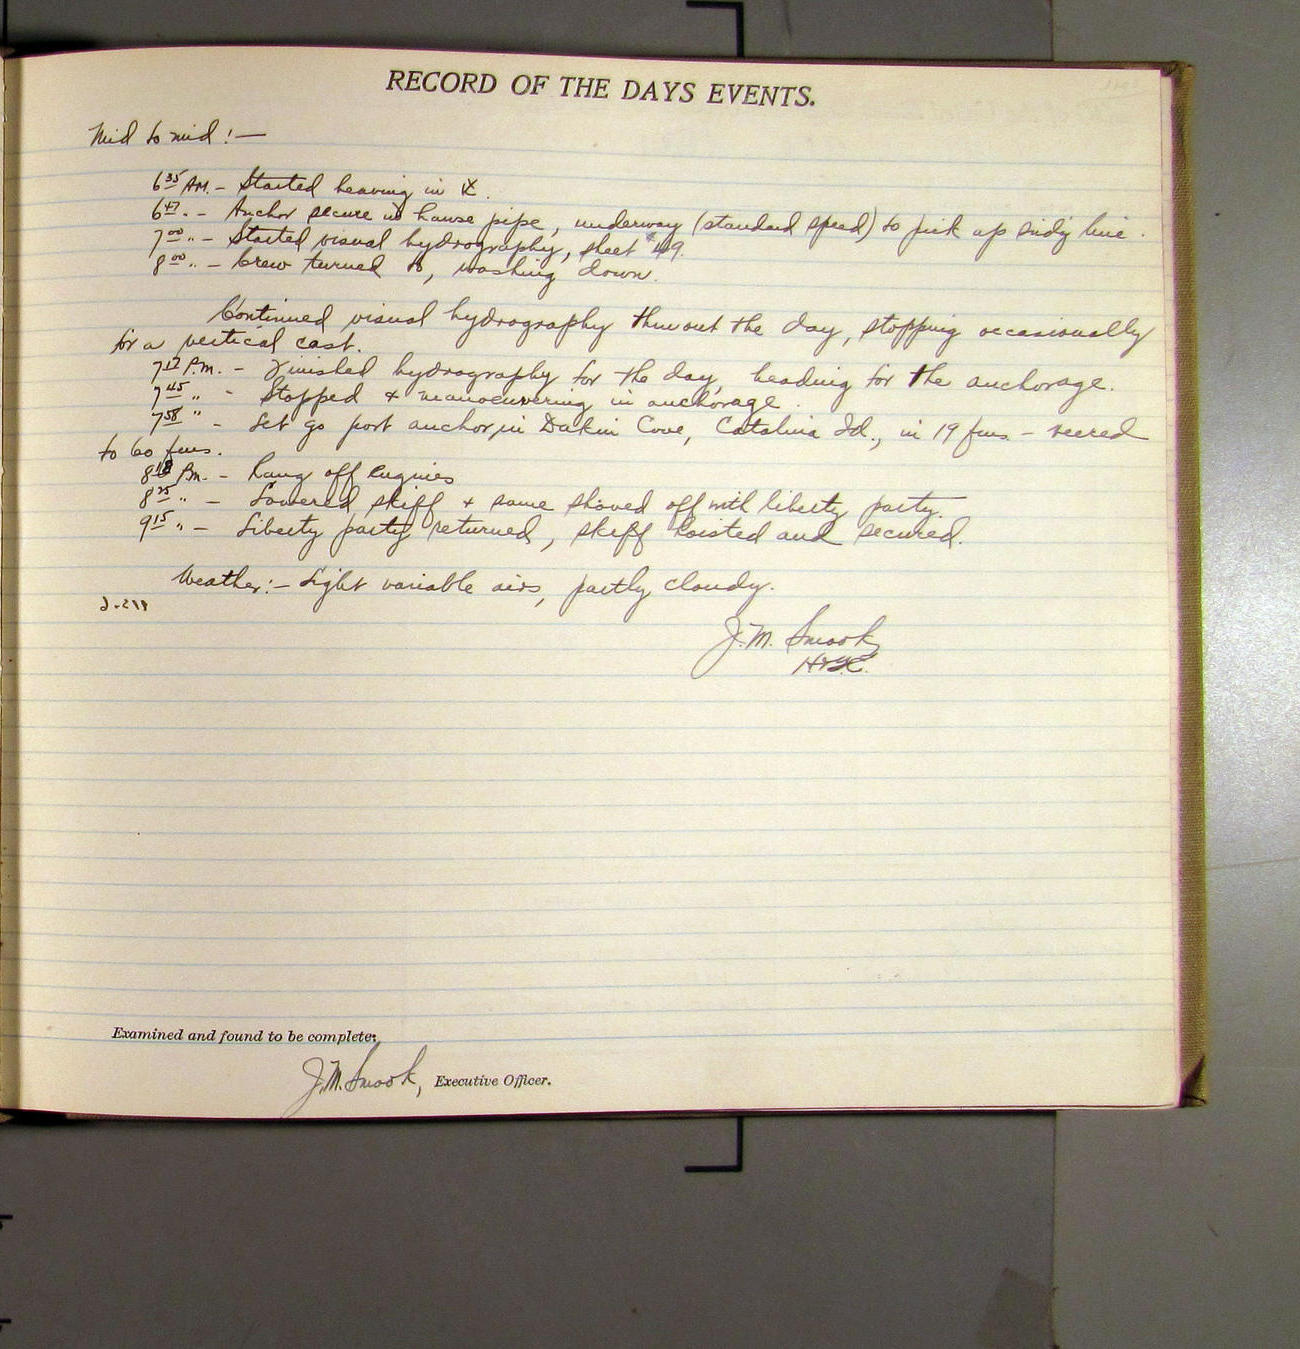 RECORD OF THE DAYS EVENTS.
Mid to mid:—
6 35 AM. - Started heaving in ⚓.
6 47 " - Anchor secure in hawse pipe, underway (standard speed) to pick up sndg line.
7 00 " - Started visual hydrography, sheet #49.
8 00 " - Crew turned to, washing down.
Continued visual hydrography thruout the day, stopping occasionally
for a vertical cast.
P.M. - Finished hydrography for the day, heading for the anchorage.
7 45 " - Stopped & manoeuvering in anchorage.
7 58 " - Let go port anchor in Dakin Cove, Catalina Id., in 19 fms - veered
to 60 fms.
P.M. - Rang off engines
8 25 " - Lowered skiff & same shoved off with liberty party.
9 15 " - Liberty party returned, skiff hoisted and secured.
Weather:- Light variable airs, partly cloudy.
J.M. Smook
H&GE.
Examined and found to be complete:
J.M. Smook, Executive Officer.